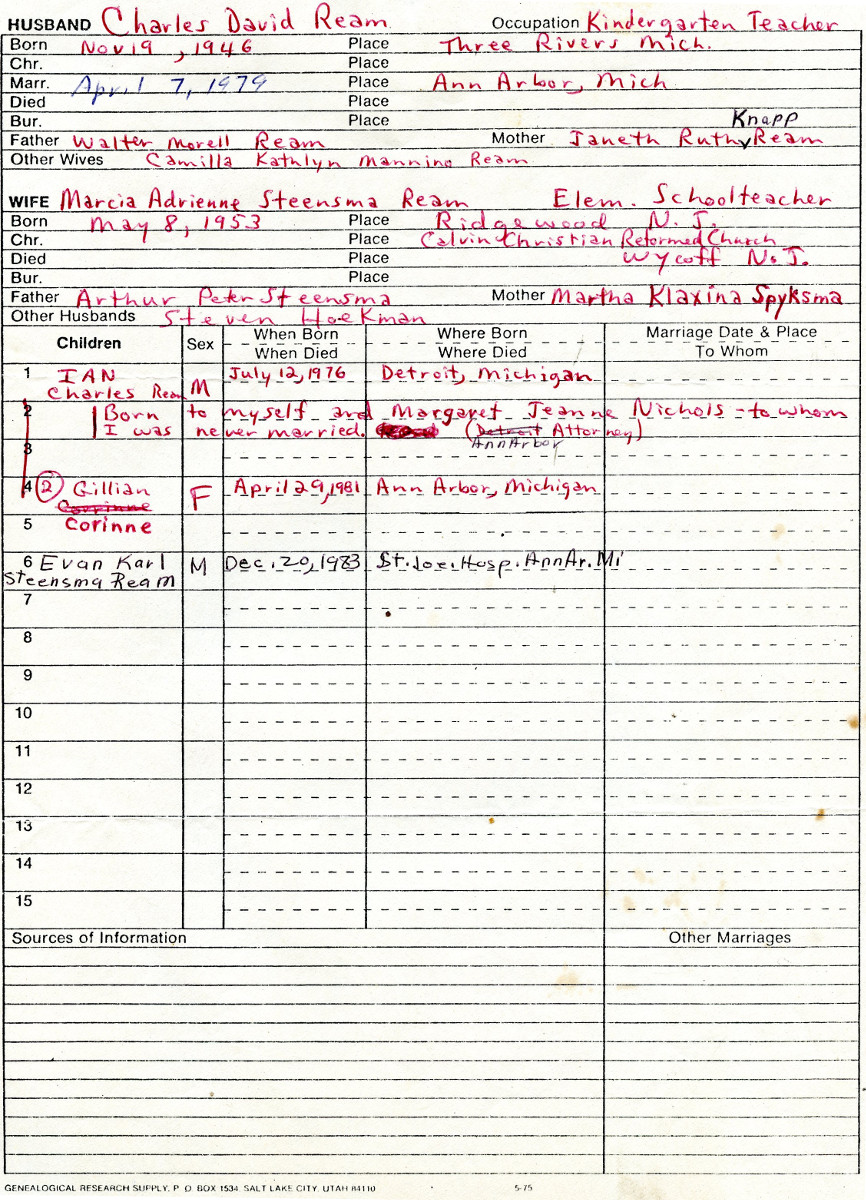 HUSBAND Charles David Ream Occupation Kindergarten Teacher
Born Nov 19, 1946 Place Three Rivers Mich.
Chr. Place
Marr. April 7, 1979 Place Ann Arbor, Mich
Died Place
Bur. Place Knapp
Father Walter Morell Ream Mother Janeth Ruth Ream
Other Wives Camilla Kathlyn Mannino Ream
WIFE Marcia Adrienne Steensma Ream Elem. Schoolteacher
Born May 8, 1953 Place Ridgewood N.J.
Chr. Place Calvin Christian Reformed Church
Died Place Wycoff N.J.
Bur. Place
Father Arthur Peter Steensma Mother Martha Klaxina Spyksma
Other Husbands Steven Hoekman
Children Sex When Born Where Born Marriage Date & Place
When Died Where Died To Whom
1 IAN July 12, 1976 Detroit, Michigan
Charles Ream M
2 Born to myself and Margaret Jeanne Nichols - to whom
I was never married. (Detroit Attorney)
3 Ann Arbor
4 (2) Gillian F April 29, 1981 Ann Arbor, Michigan
Corrinne
5 Corinne
6 Evan Karl M Dec. 20, 1983 St. Joe. Hosp. Ann Ar. Mi
Steensma Ream
7
8
9
10
11
12
13
14
15
Sources of Information Other Marriages
GENEALOGICAL RESEARCH SUPPLY, P. O. BOX 1534, SALT LAKE CITY, UTAH 84110 5-75